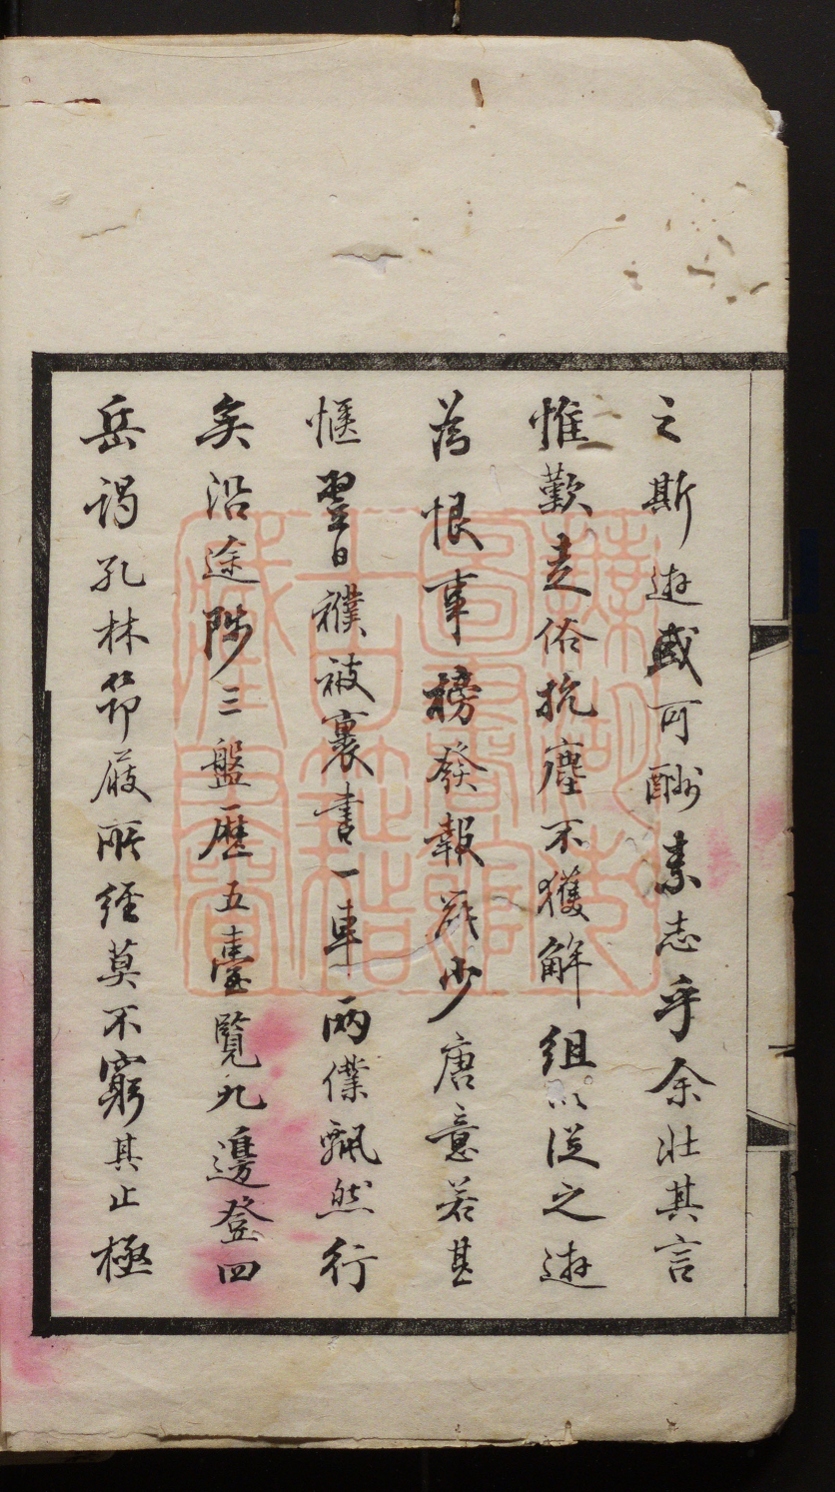 之斯遊或可酬素志乎余壯其言
惟歎走俗抗塵不獲解組以從之遊
為恨事榜發報罷少唐意若甚
愜翌日襆被裹書一車兩僕飄然行
矣沿途陟三盤歷五臺覽九邊登四
岳謁孔林笻屐所經莫不窮其止極